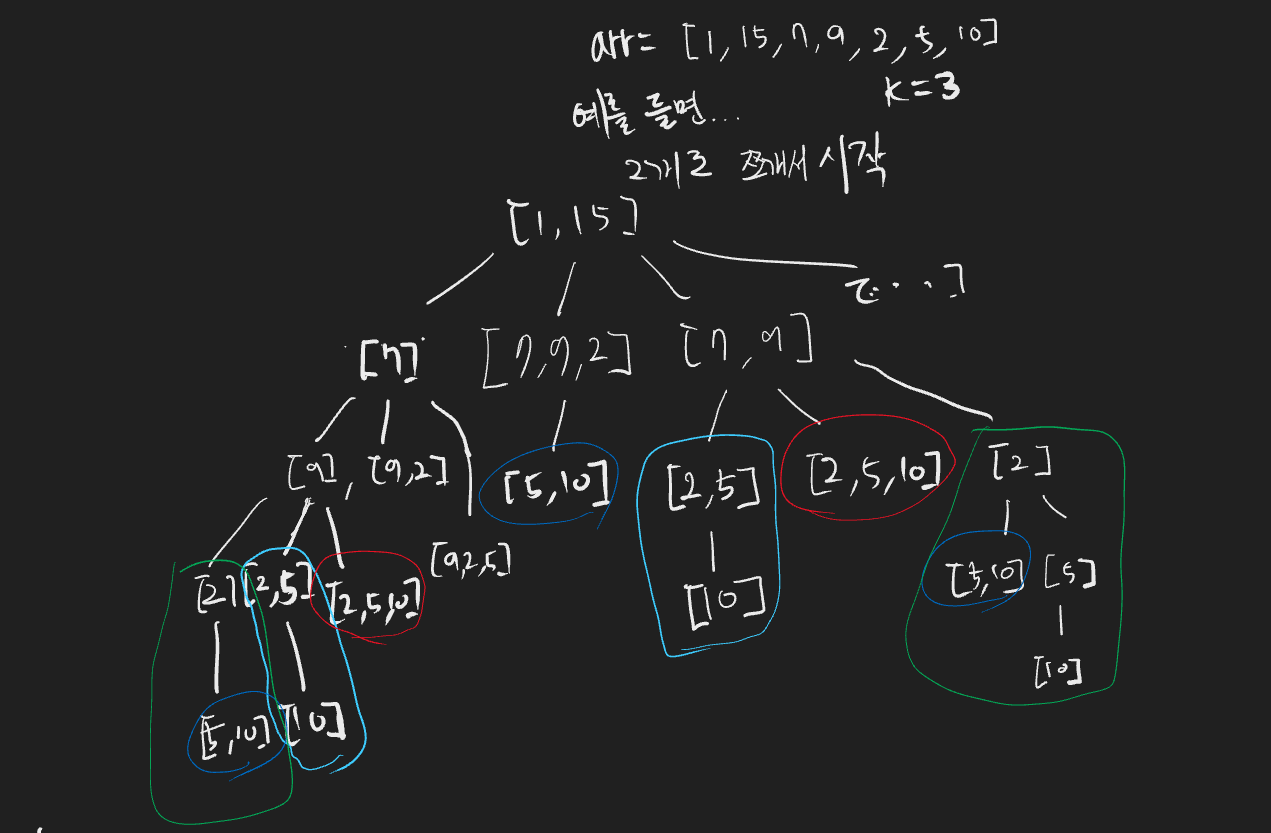 arr= [1, 15, 7, 9, 2, 5, 10]
k=3
예를 들면...
2개로 쪼개서 시작
[1, 15]
[...]
[7]
[7, 9, 2]
[7, 9]
[9], [9, 2]
[5, 10]
[2, 5]
[2, 5, 10]
[2]
[9, 2, 5]
[2] [2, 5] [2, 5, 10]
[10]
[5, 10] [5]
[10]
[5, 10] [10]